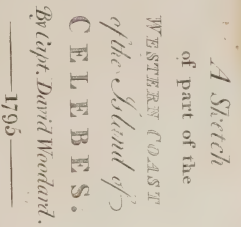 A Sketch
of part of the
WESTERN COAST
of the Island of
CELEBES.
By Capt. David Woodard.
1795